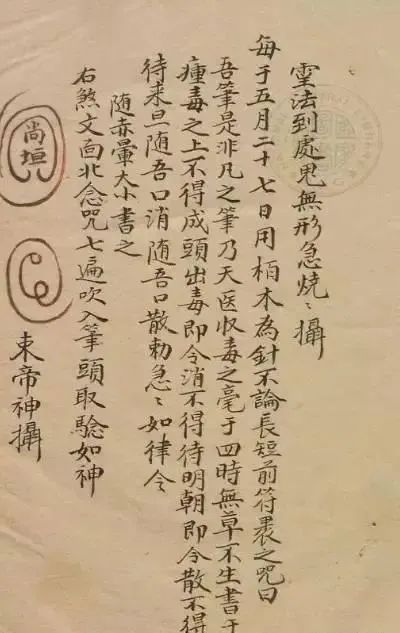 霊法到處鬼無形急燒〻攝
每于五月二十七日用栢木為針不論長短前符裹之咒曰
吾筆是非凡之筆乃天医收毒之毫于四時無草不生書于
瘇毒之上不得成頭出毒即令消不得待明朝即令散不得
待来旦随吾口消随吾口散勅急〻如律令
随赤暈大小書之
右煞文面北念咒七遍吹入筆頭取驗如神
尚垣
東帝神攝